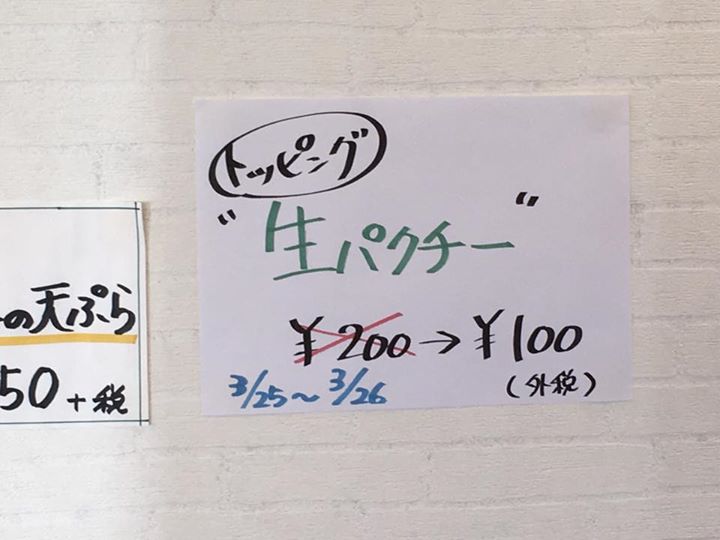 トッピング
"生パクチー"
¥200→¥100
3/25〜3/26
(外税)
の天ぷら
50+税